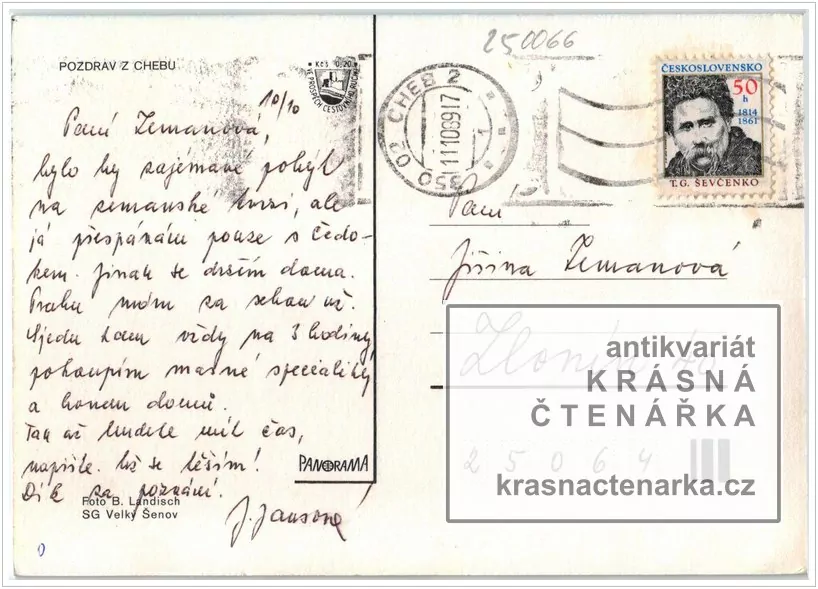 250066
POZDRAV Z CHEBU
Kčs 0,20
VE PROSPĚCH CESTOVNÍHO RUCHU
350 02 CHEB 2
11.10.89.17
ČESKOSLOVENSKO
50
h
1814
1861
T.G. ŠEVČENKO
10/10
Paní Zemanová,
bylo by zajímavé pobýt
na zemanské tvrzi, ale
já přespávám pouze s Čedo-
kem. Jinak se držím doma.
Prahu mám za sebou už.
Sjedu tam vždy na 3 hodiny,
nakoupím masné speciality
a honem domů.
Tak až budete mít čas,
napište. Už se těším!
Dík za pozvání.
J. Jansová
Paní
Jiřina Zemanová
Zlonín 40
25064
PANORAMA
Foto B. Landisch
SG Velký Šenov
antikvariát
KRÁSNÁ
ČTENÁŘKA
krasnactenarka.cz